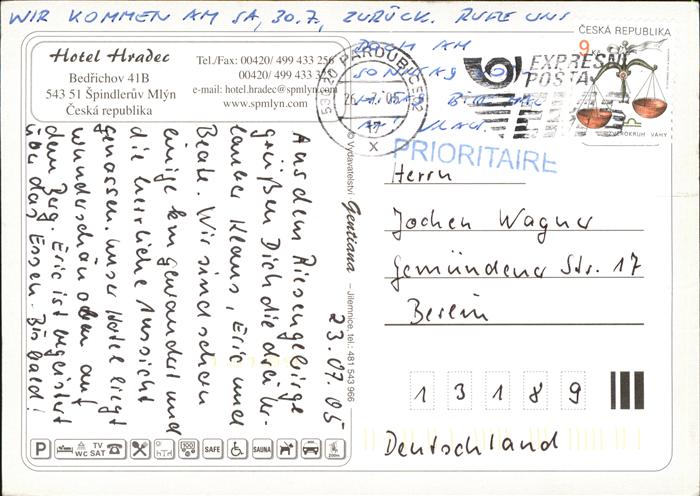 WIR KOMMEN AM SA, 30.7, ZURÜCK. RUFE UNS
DOCH AM
SONNTAG
AN
Hotel Hradec
Bedřichov 41B
543 51 Špindlerův Mlýn
Česká republika
Tel./Fax: 00420/ 499 433 256
00420/ 499 433 3
e-mail: hotel.hradec@spmlyn.com
www.spmlyn.com
ČESKÁ REPUBLIKA
9 Kč
VĚROKRUH VÁHY
530 20 PARDUBICE 2
26. 7. 05
X
EXPRESNÍ
POSTA
PRIORITAIRE
23.07.05
Aus dem Riesengebirge
grüßen Dich die drei Ur-
lauber Klaus, Eric und
Beate. Wir sind schon
einige km gewandert und
die herrliche Aussicht
genossen. Unser Hotel liegt
wunderschön oben auf
dem Berg. Eric ist begeistert
das Essen. Bis bald!
© Vydavatelství Gentiana – Jilemnice, tel.: 481 543 966
Herrn
Jochen Wagner
Gemündener Str. 17
Berlin
13189
Deutschland
P WC TV SAT SAFE SAUNA 200m